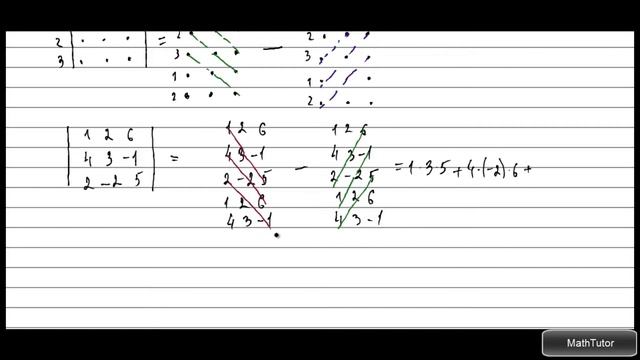 2 = 2 -  2
3 3 3
1 1
2 2
1 2 6 1 2 6 1 2 6
4 3 -1 = 4 3 -1 - 4 3 -1 = 1·3·5 + 4·(-2)·6 +
2 -2 5 2 -2 5 2 -2 5
1 2 6 1 2 6
4 3 -1 4 3 -1
MathTutor